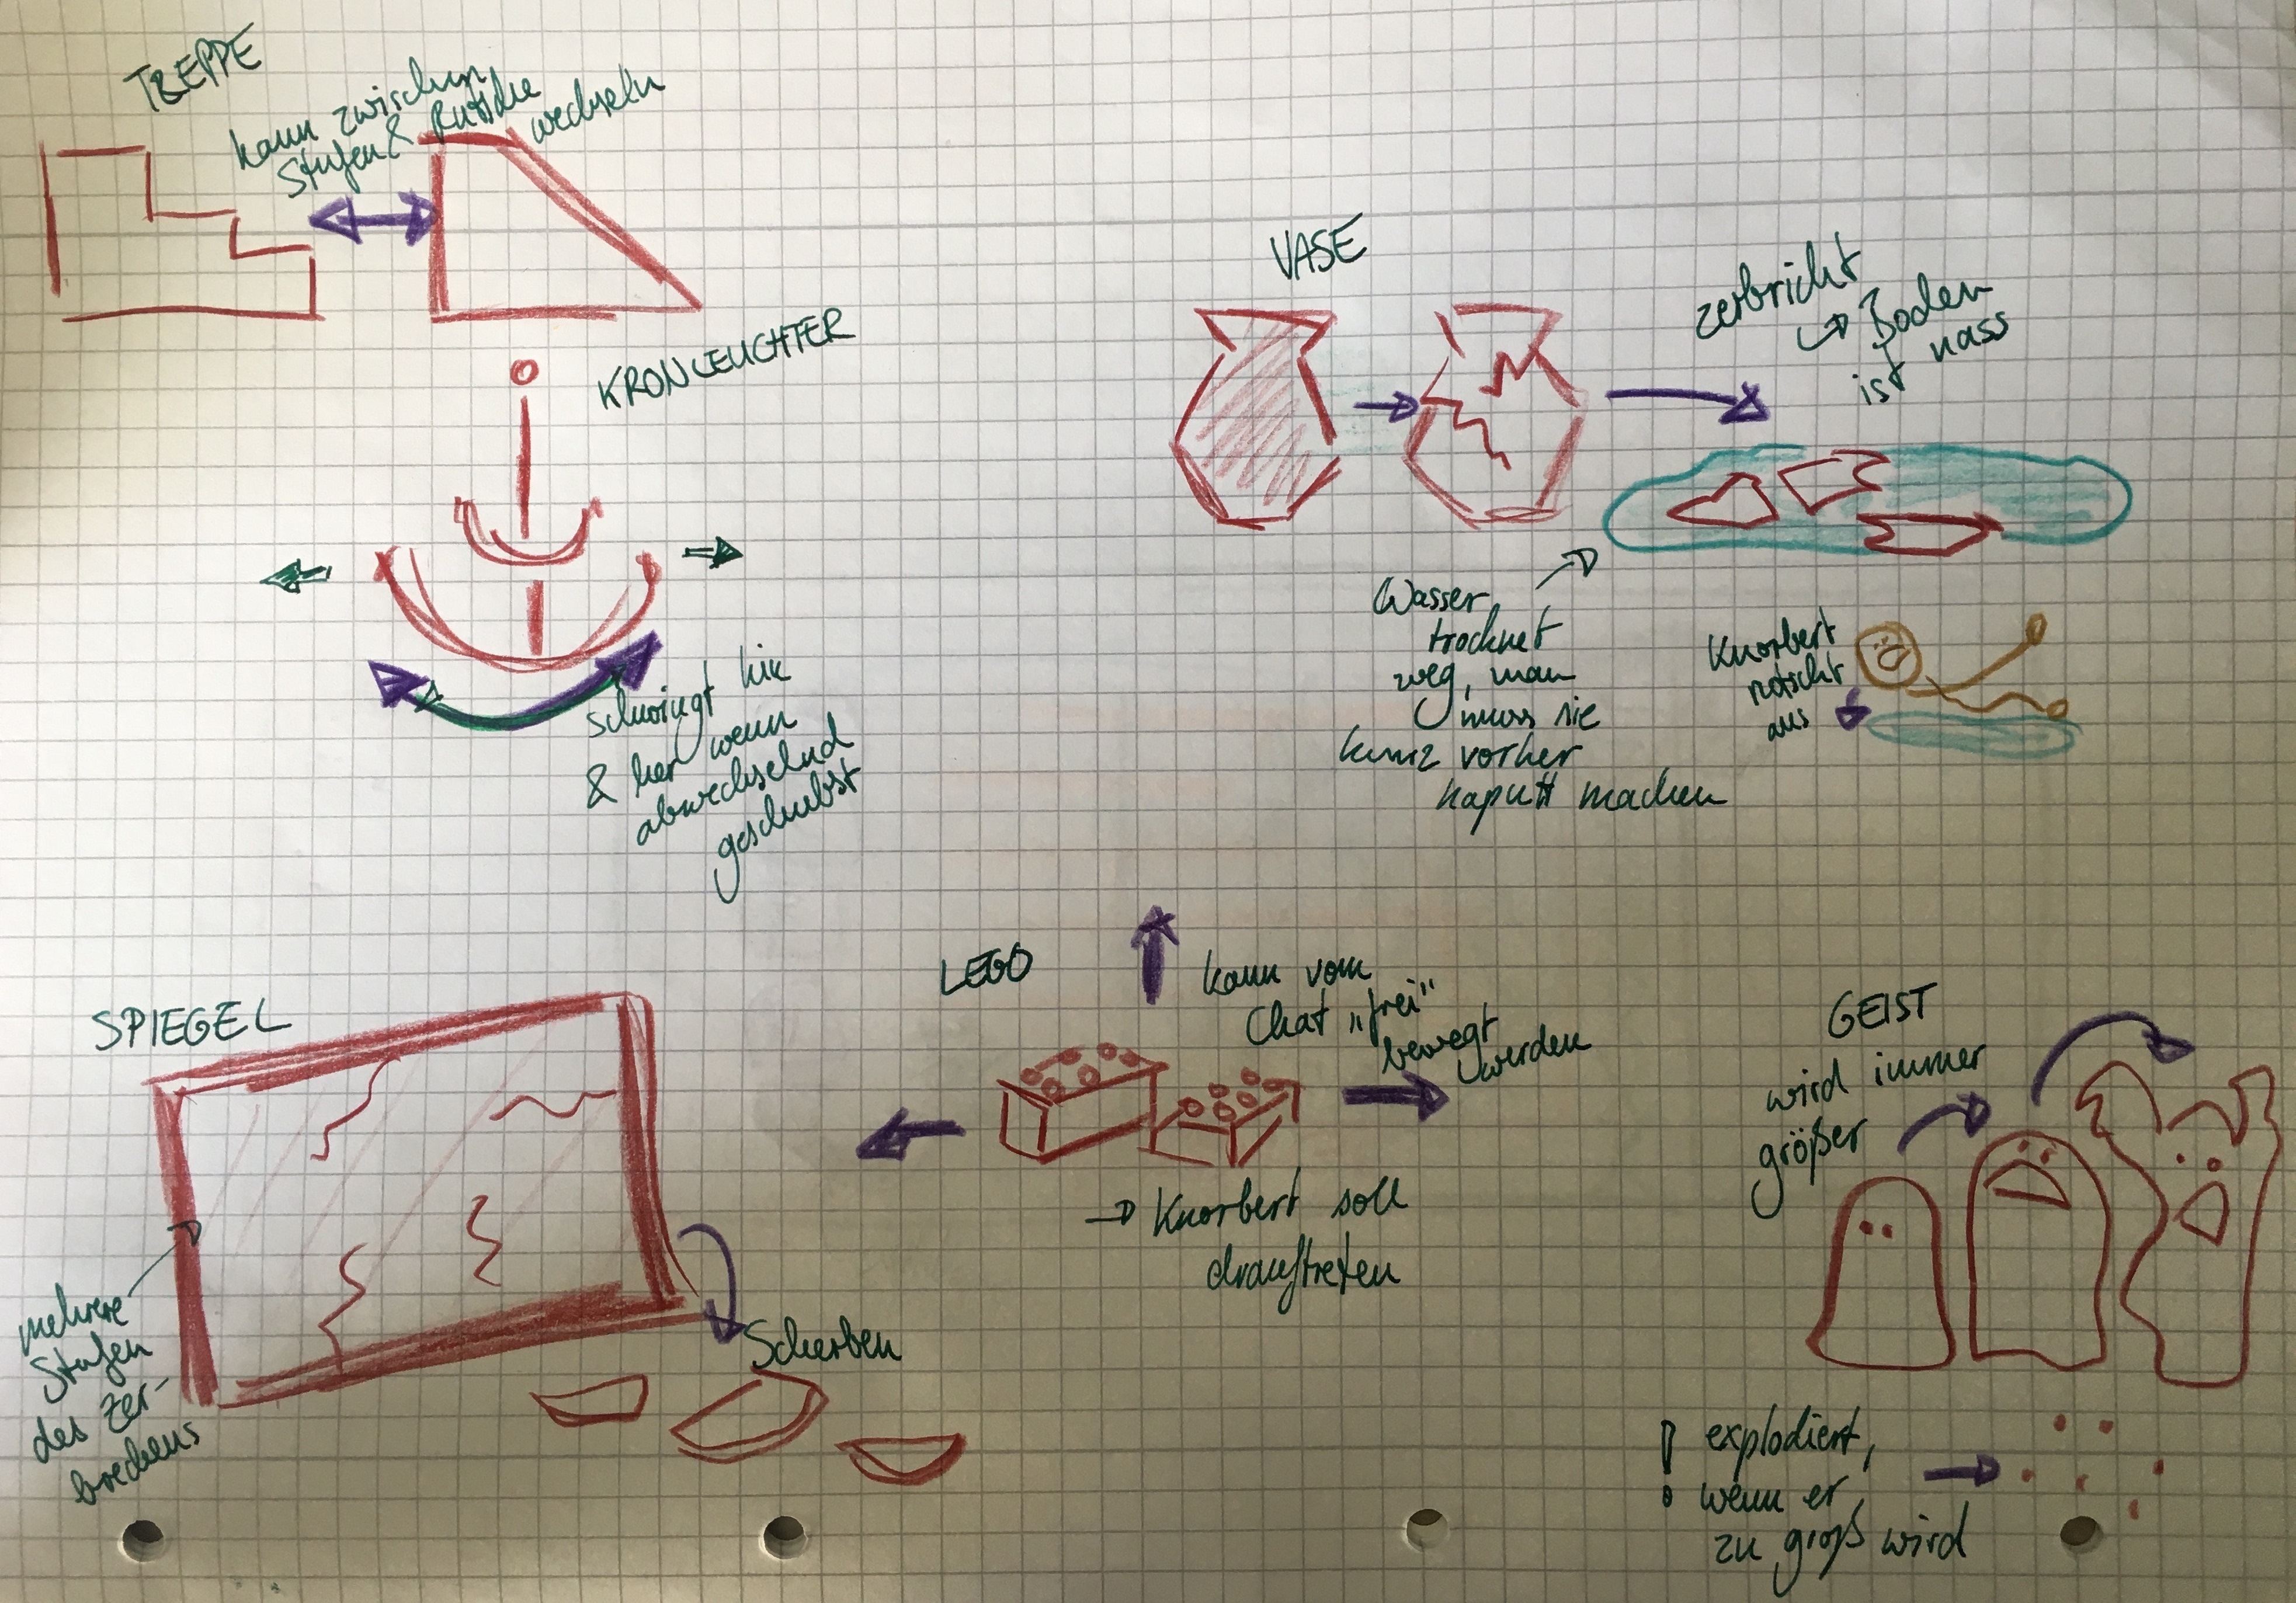 TREPPE
kann zwischen
Stufen & Rutsche
wechseln
KRONLEUCHTER
schwingt hin
& her wenn
abwechselnd
geschubst
VASE
zerbricht
↳ Boden
ist nass
Wasser
trocknet
weg, man
muss sie
kurz vorher
kaputt machen
Knorbert
rutscht
aus
SPIEGEL
mehrere
Stufen
des Zer-
brechens
Scherben
LEGO
kann vom
Chat „frei"
bewegt
werden
→ Knorbert soll
drauftreten
GEIST
wird immer
größer
! explodiert,
wenn er
zu groß wird